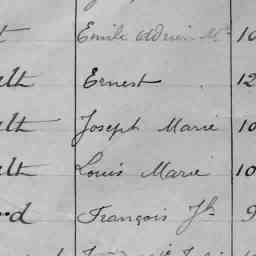 t Emile Adrien Mie 10
elt Ernest 12
elt Joseph Marie 10
elt Louis Marie 10
d François Jh 9